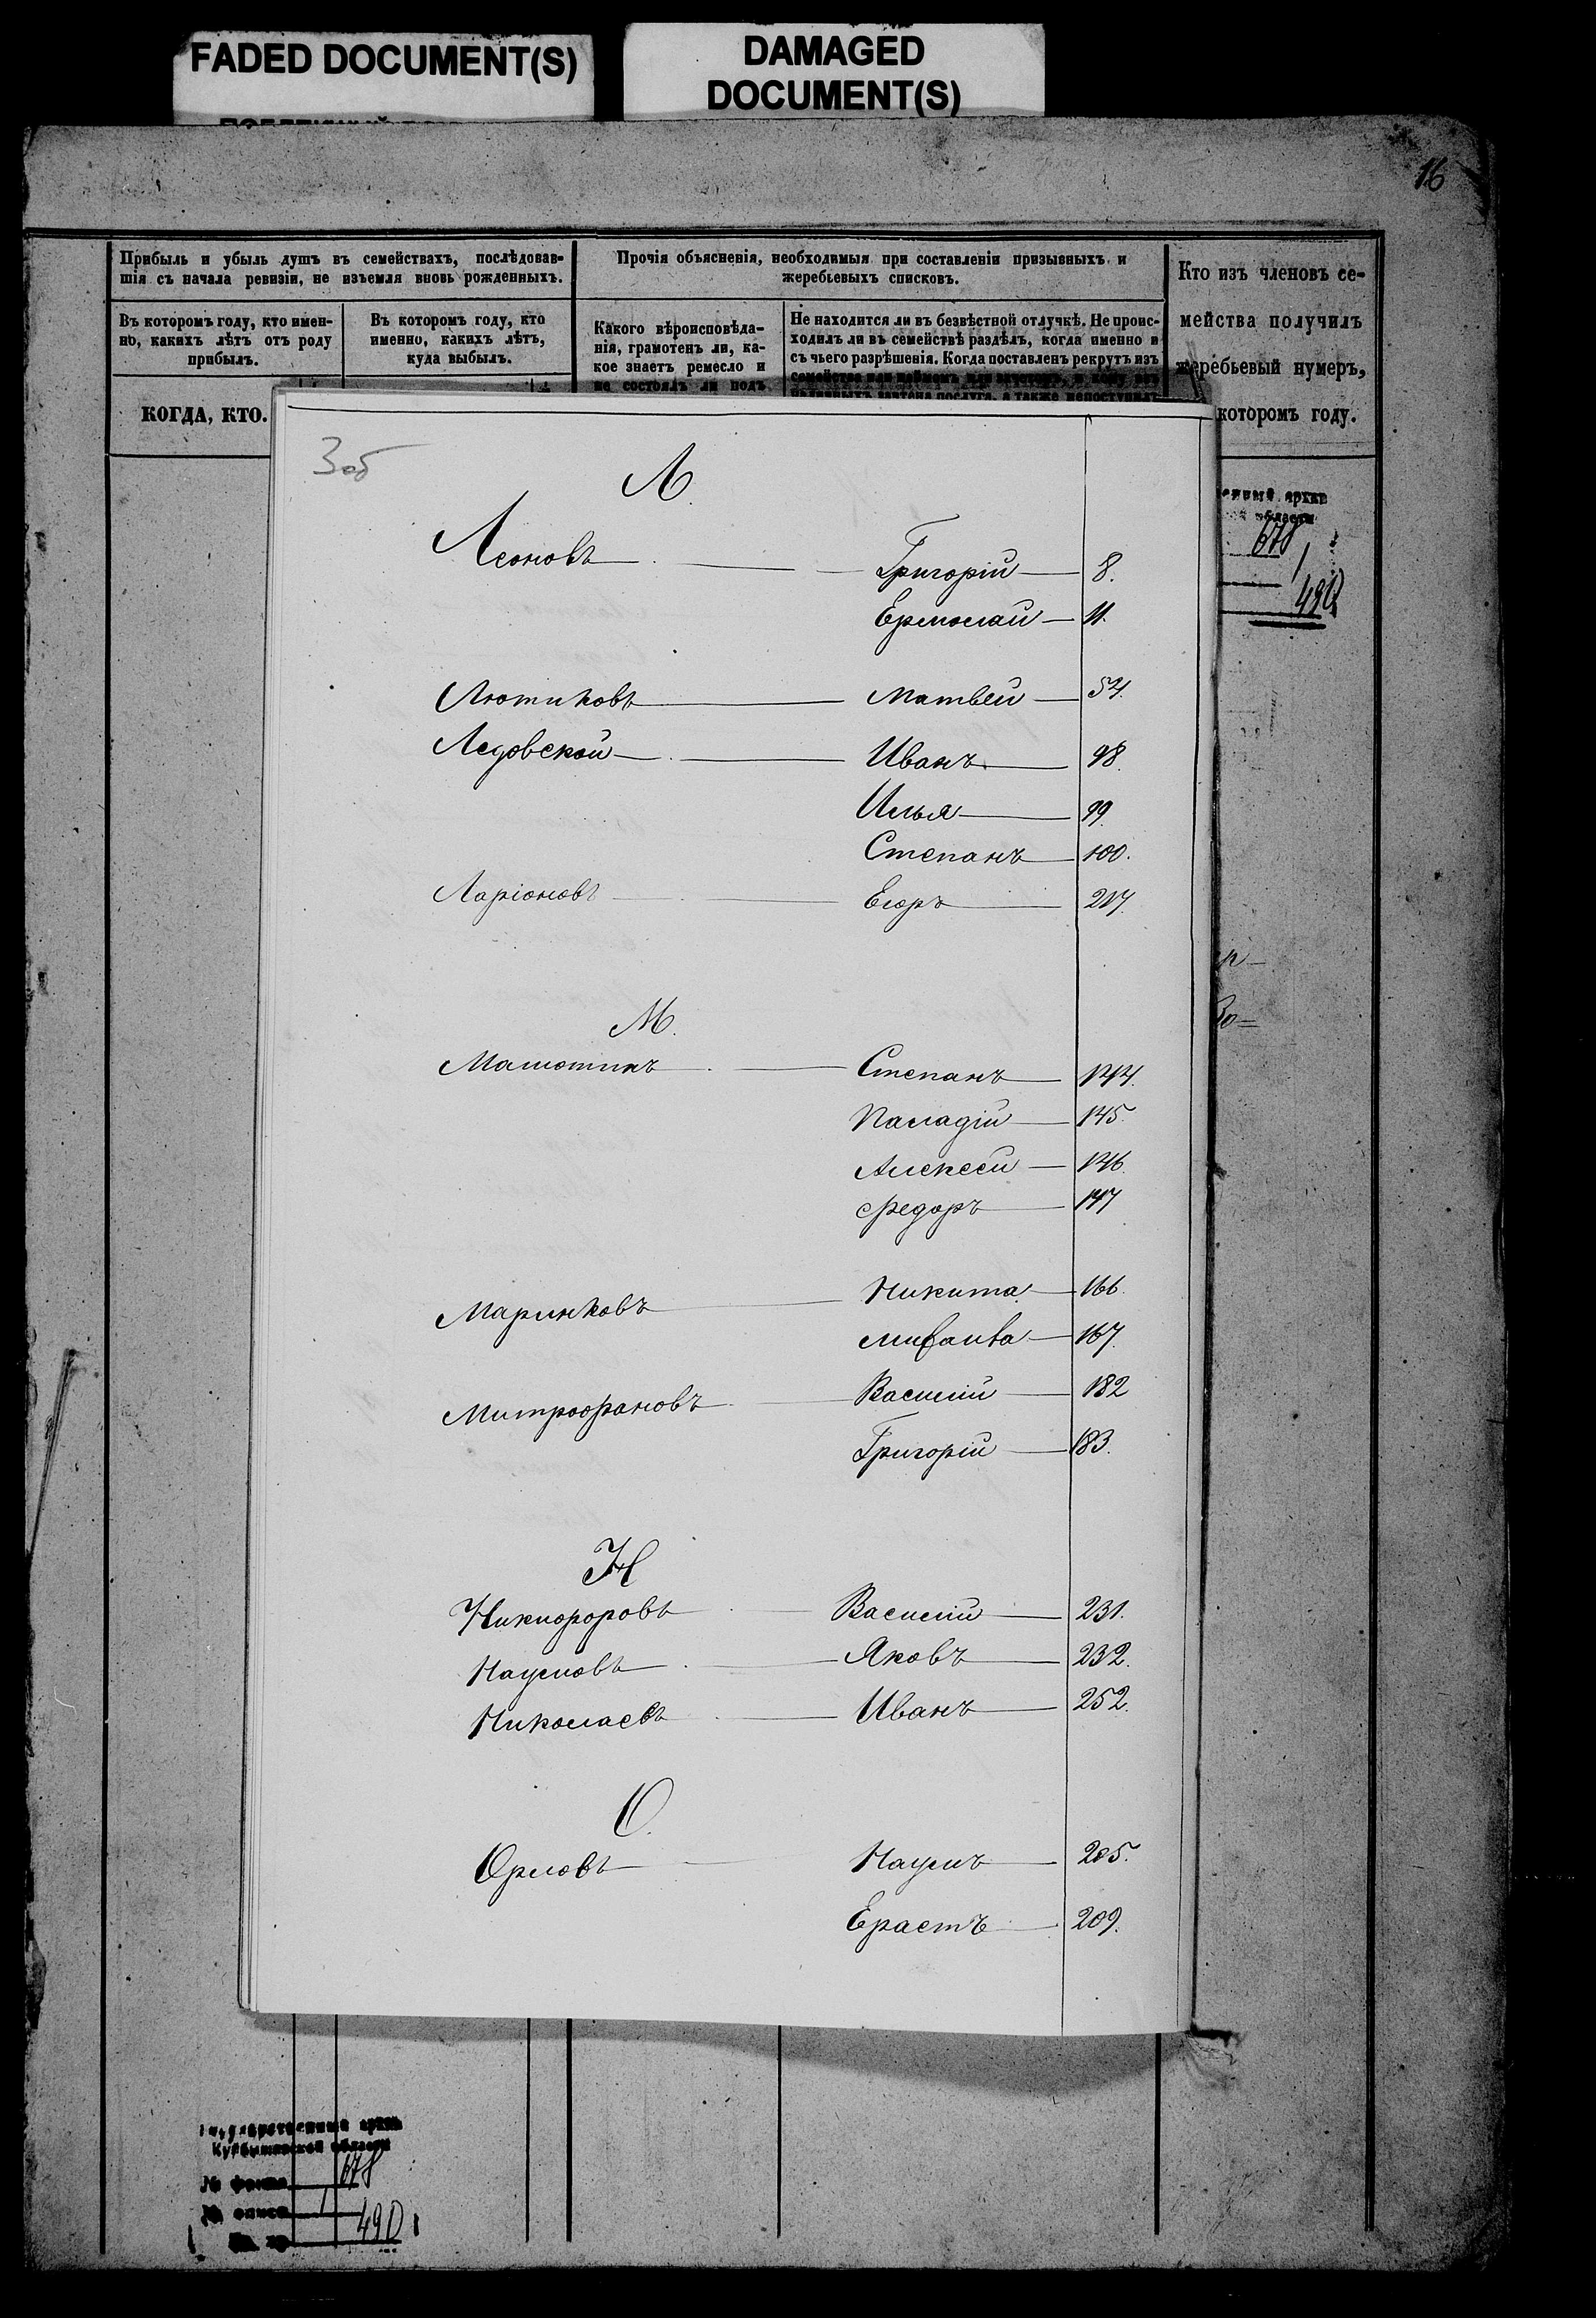 FADED DOCUMENT(S)
DAMAGED
DOCUMENT(S)
16
Прибыль и убыль душъ въ семействахъ, послѣдовав-
шія съ начала ревизіи, не изъемля вновь рожденныхъ.
Прочія объясненія, необходимыя при составленіи призывныхъ и
жеребьевыхъ списковъ.
Кто изъ членовъ се-
мейства получилъ
жеребьевый нумеръ,
которомъ году.
Въ которомъ году, кто имен-
но, какихъ лѣтъ отъ роду
прибылъ.
Въ которомъ году, кто
именно, какихъ лѣтъ,
куда выбылъ.
Какого вѣроисповѣда-
нія, грамотенъ ли, ка-
кое знаетъ ремесло и
не состоялъ ли подъ
Не находится ли въ безвѣстной отлучкѣ. Не проис-
ходилъ ли въ семействѣ раздѣлъ, когда именно и
съ чьего разрѣшенія. Когда поставленъ рекрутъ изъ
КОГДА, КТО.
3об
Л.
Леоновъ — Григорій — 8.
Ермолай — 11.
Лютиковъ — Матвей — 54.
Ледовской — Иванъ — 98.
Илья — 99.
Степанъ — 100.
Ларіоновъ — Егоръ — 217.
М.
Малютинъ — Степанъ — 144.
Паладій — 145.
Алексей — 146.
Федоръ — 147
Маринковъ — Никита — 166.
167.
Митрофановъ — Василій — 182
Григорій — 183.
Н
Никифоровъ — Василій — 231.
Наумовъ — Яковъ — 232.
Николаевъ — Иванъ — 252.
О.
Орловъ — Наумъ — 205.
Ерастъ — 209.
678
1
490
Государственный архив
Куйбышевской области
№ фонда 678
№ описи 1
490